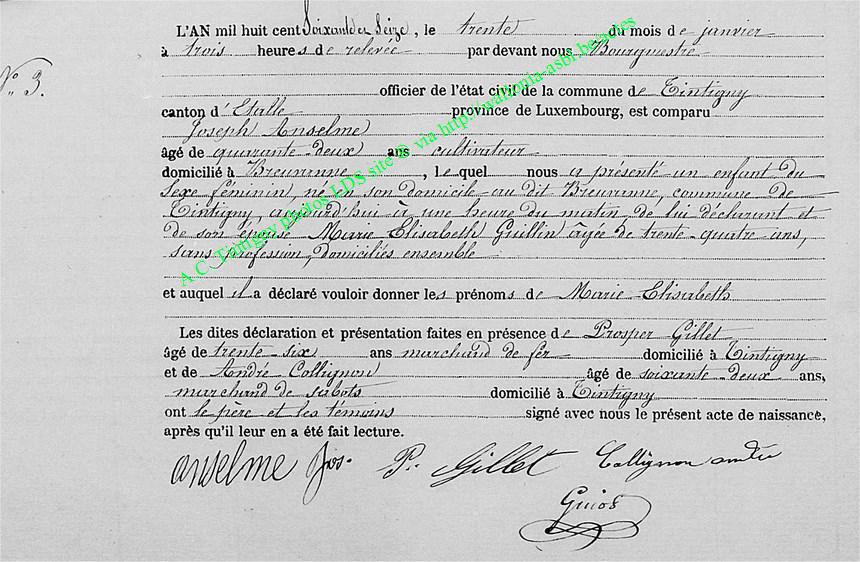 L'AN mil huit cent Soixante et Seize, le trente du mois de janvier
à trois heures de relevée par devant nous Bourgmestre
N° 3.
officier de l'état civil de la commune de Tintigny
canton d'Etalle province de Luxembourg, est comparu
Joseph Anselme
âgé de quarante-deux ans cultivateur
domicilié à Breuvanne, lequel nous a présenté un enfant du
sexe féminin, né en son domicile au dit Breuvanne, commune de
Tintigny, aujourd'hui à une heure du matin, de lui déclarant et
de son épouse Marie Elisabeth Guillin âgée de trente-quatre ans,
sans profession, domiciliés ensemble
et auquel il a déclaré vouloir donner les prénoms de Marie-Elisabeth
Les dites déclaration et présentation faites en présence de Prosper Gillet
âgé de trente-six ans marchand de fer domicilié à Tintigny
et de André Collignon âgé de soixante-deux ans,
marchand de sabots domicilié à Tintigny
ont le père et les témoins signé avec nous le présent acte de naissance,
après qu'il leur en a été fait lecture.
anselme Jos. P. Gillet Collignon andré
Guiot
A.C. Tintigny photos LDS site © via http://wallonia-asbl.be/actes